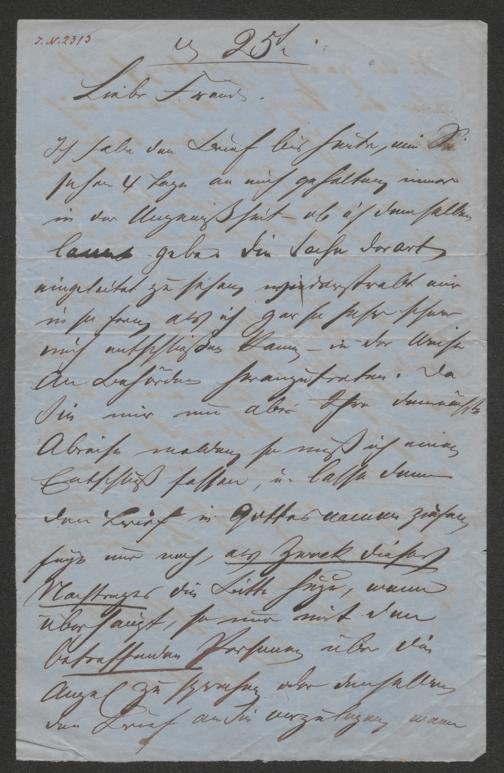 I. N. 2313
25t
Lieber Freund.
Ich habe den Brief bis heute, wie Sie
sehen 4 Tage an mich gehalten immer
in der Ungewißheit ob ich denselben
geben die Sache derart
eingeleitet zu sehen widerstrebt mir
in so fern als ich gar so sehr schwer
mich entschließen kann – in der Weise
an Behörden heranzutreten. Da
Sie mir nun aber Ihre demnächstige
Abreise melden so muß ich einen
Entschluß fassen, u. lasse denn
den Brief in Gottes namen ziehen,
füge nur noch, als Zweck dieses
Nachtrages die Bitte hinzu, wenn
überhaupt, so nur mit den
betreffenden Personen über die
Angel. zu sprechen oder denselben
den Brief an Sie vorzulegen wenn